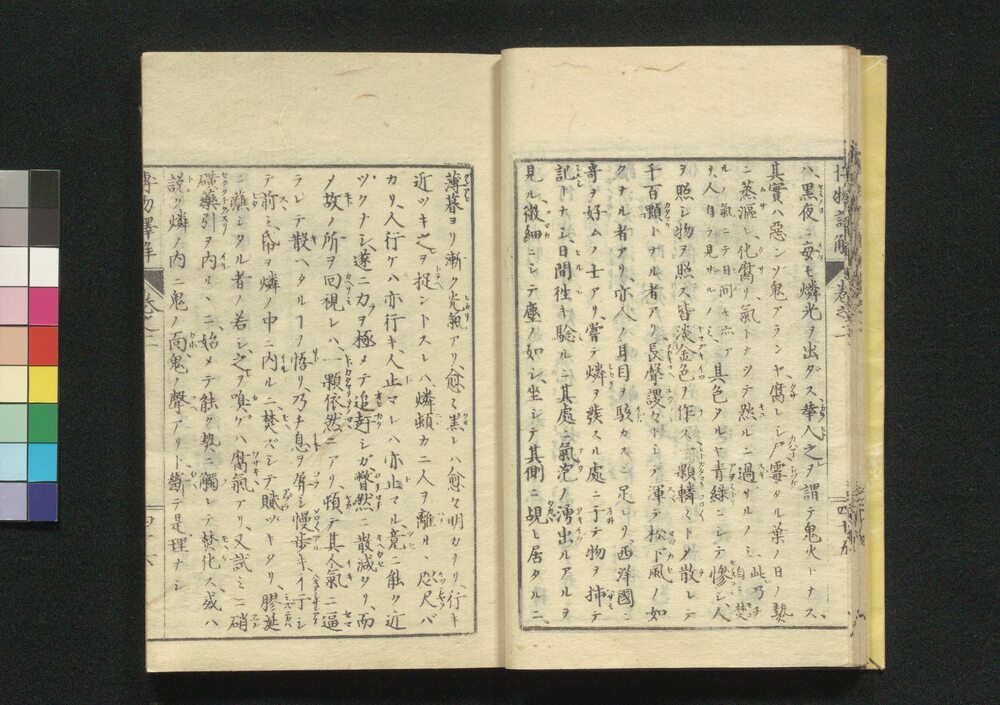 博物譯解 卷之二
ハ、黒夜ニ毎モ燐光ヲ出ダス、華人之ヲ謂テ鬼火トナス、
其實ハ惡ンゾ鬼アランヤ、腐レシ尸霉タル葉ノ日ノ熱
ニ蒸漚シ、化腐リ氣トナツテ然ルニ過ザルノミ、此乃チ自ラ焚
ルノ氣ニテ日間モ亦
リ、人自ラ見ザルノミ、其色タルヤ青緑ニシテ慘シ、人
ヲ照シ物ヲ照ス皆淡金色ヲ作ス、一顆轔々トメ散レテ
千百顆トナル者アリ、長聲謖々トシテ渾テ松下風ノ如
クナル者アリ、亦人ノ耳目ヲ駭カスニ足レリ、西洋國ニ
哥ヲ好ムノ士アリ、嘗テ燐ヲ發スル處ニ于テ物ヲ挿テ
記トナシ、日間徃キ驗ルニ其處ニ氣泡ノ湧出ルアルヲ
見ル、微細ニシテ塵ノ如シ、坐シテ其側ニ覘レ居タルニ、
薄暮ヨリ漸ク光氣アリ、愈〻黒レハ愈々明カナリ、行キ
近ヅキ之ヲ捉ントスレハ燐頓カニ人ヲ離ル、咫尺バ
カリ、人行ケハ亦行キ、人止マレハ亦止マル、竟ニ能ク近
ヅクナシ、遂ニ力ヲ極メテ追赶シガ瞥然ニ散減タリ、而
メ故ノ所ヲ回視レハ、一顆依然ニアリ、頓テ其人氣ニ逼
ラレテ散ヘタルヿヲ悟リ、乃チ息ヲ屏シ慢歩キ、イ亍シ
テ前ミ、帋ヲ燐ノ中ニ内ルニ焚ズシテ賦ツキタリ、膠涎
ニ蘸シタル者ノ若シ、之ヲ嗅ゲハ腐氣アリ、又試ミニ硝
磺藥引ヲ内ルヽニ、始メテ能ク熱ニ觸レテ焚化ス、或ハ
説ク燐ノ内ニ鬼ノ面鬼ノ聲アリト、斷テ是理ナシ
博物譯解 卷之二
四十六